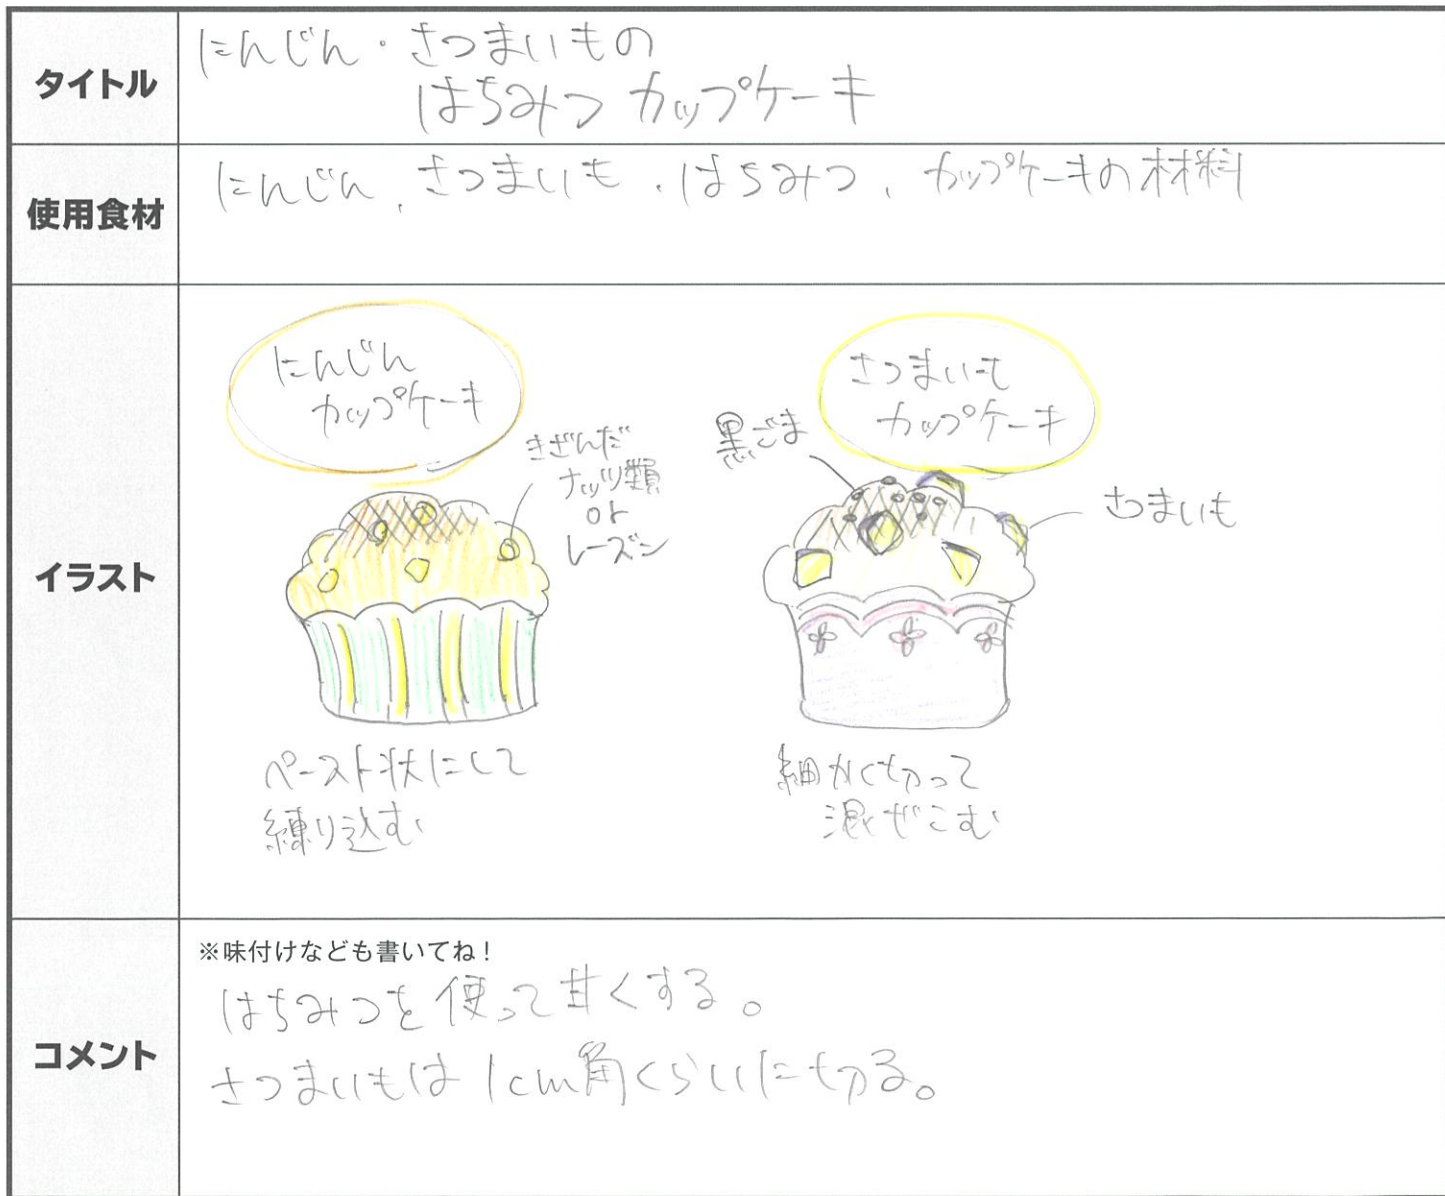 タイトル
にんじん・さつまいもの
はちみつ カップケーキ
使用食材
にんじん、さつまいも、はちみつ、カップケーキの材料
イラスト
にんじん
カップケーキ
きざんだ
ナッツ類
or
レーズン
ペースト状にして
練り込む
さつまいも
カップケーキ
黒ごま
さつまいも
細かく切って
混ぜこむ
コメント
※味付けなども書いてね!
はちみつを使って甘くする。
さつまいもは1cm角くらいに切る。